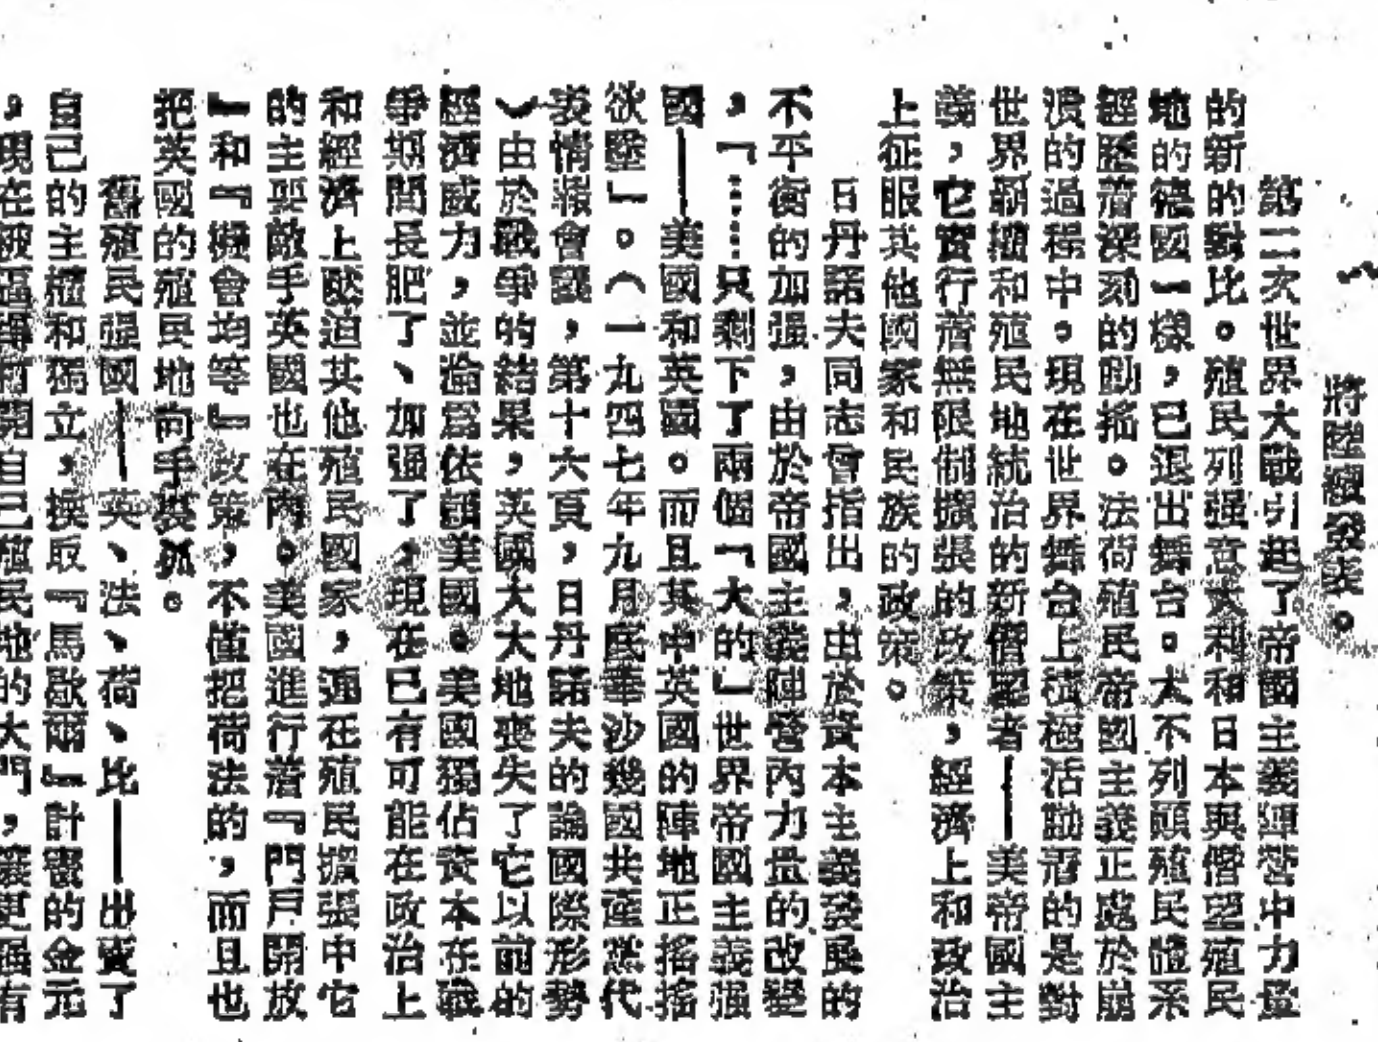 將陸續發表。
第二次世界大戰引起了帝國主義陣營中力量
的新的對比。殖民列强意大利和日本與僭望殖民
地的德國一樣,已退出舞台。大不列顛殖民體系
經歷着深刻的動搖。法荷殖民帝國主義正處於崩
潰的過程中。現在世界舞台上積極活動着的是對
世界霸權和殖民地統治的新僭望者——美帝國主
義,它實行着無限制擴張的政策,經濟上和政治
上征服其他國家和民族的政策。
日丹諾夫同志曾指出,由於資本主義發展的
不平衡的加强,由於帝國主義陣營內力量的改變
,「……只剩下了兩個「大的」世界帝國主義强
國——美國和英國。而且其中英國的陣地正搖搖
欲墜」。(一九四七年九月底華沙幾國共產黨代
表情報會議,第十六頁,日丹諾夫的論國際形勢
)由於戰爭的結果,英國大大地喪失了它以前的
經濟威力,並淪爲依賴美國。美國獨佔資本在戰
爭期間長肥了、加强了,現在已有可能在政治上
和經濟上壓迫其他殖民國家,連在殖民擴張中它
的主要敵手英國也在內。美國進行着『門戶開放
』和『機會均等』政策,不僅把荷法的,而且也
把英國的殖民地向手獎孤。
舊殖民强國——英、法、荷、比——出賣了
自己的主權和獨立,換取『馬歇爾』計劃的金元
,現在被逼得打開自己殖民地的大門,讓更强有